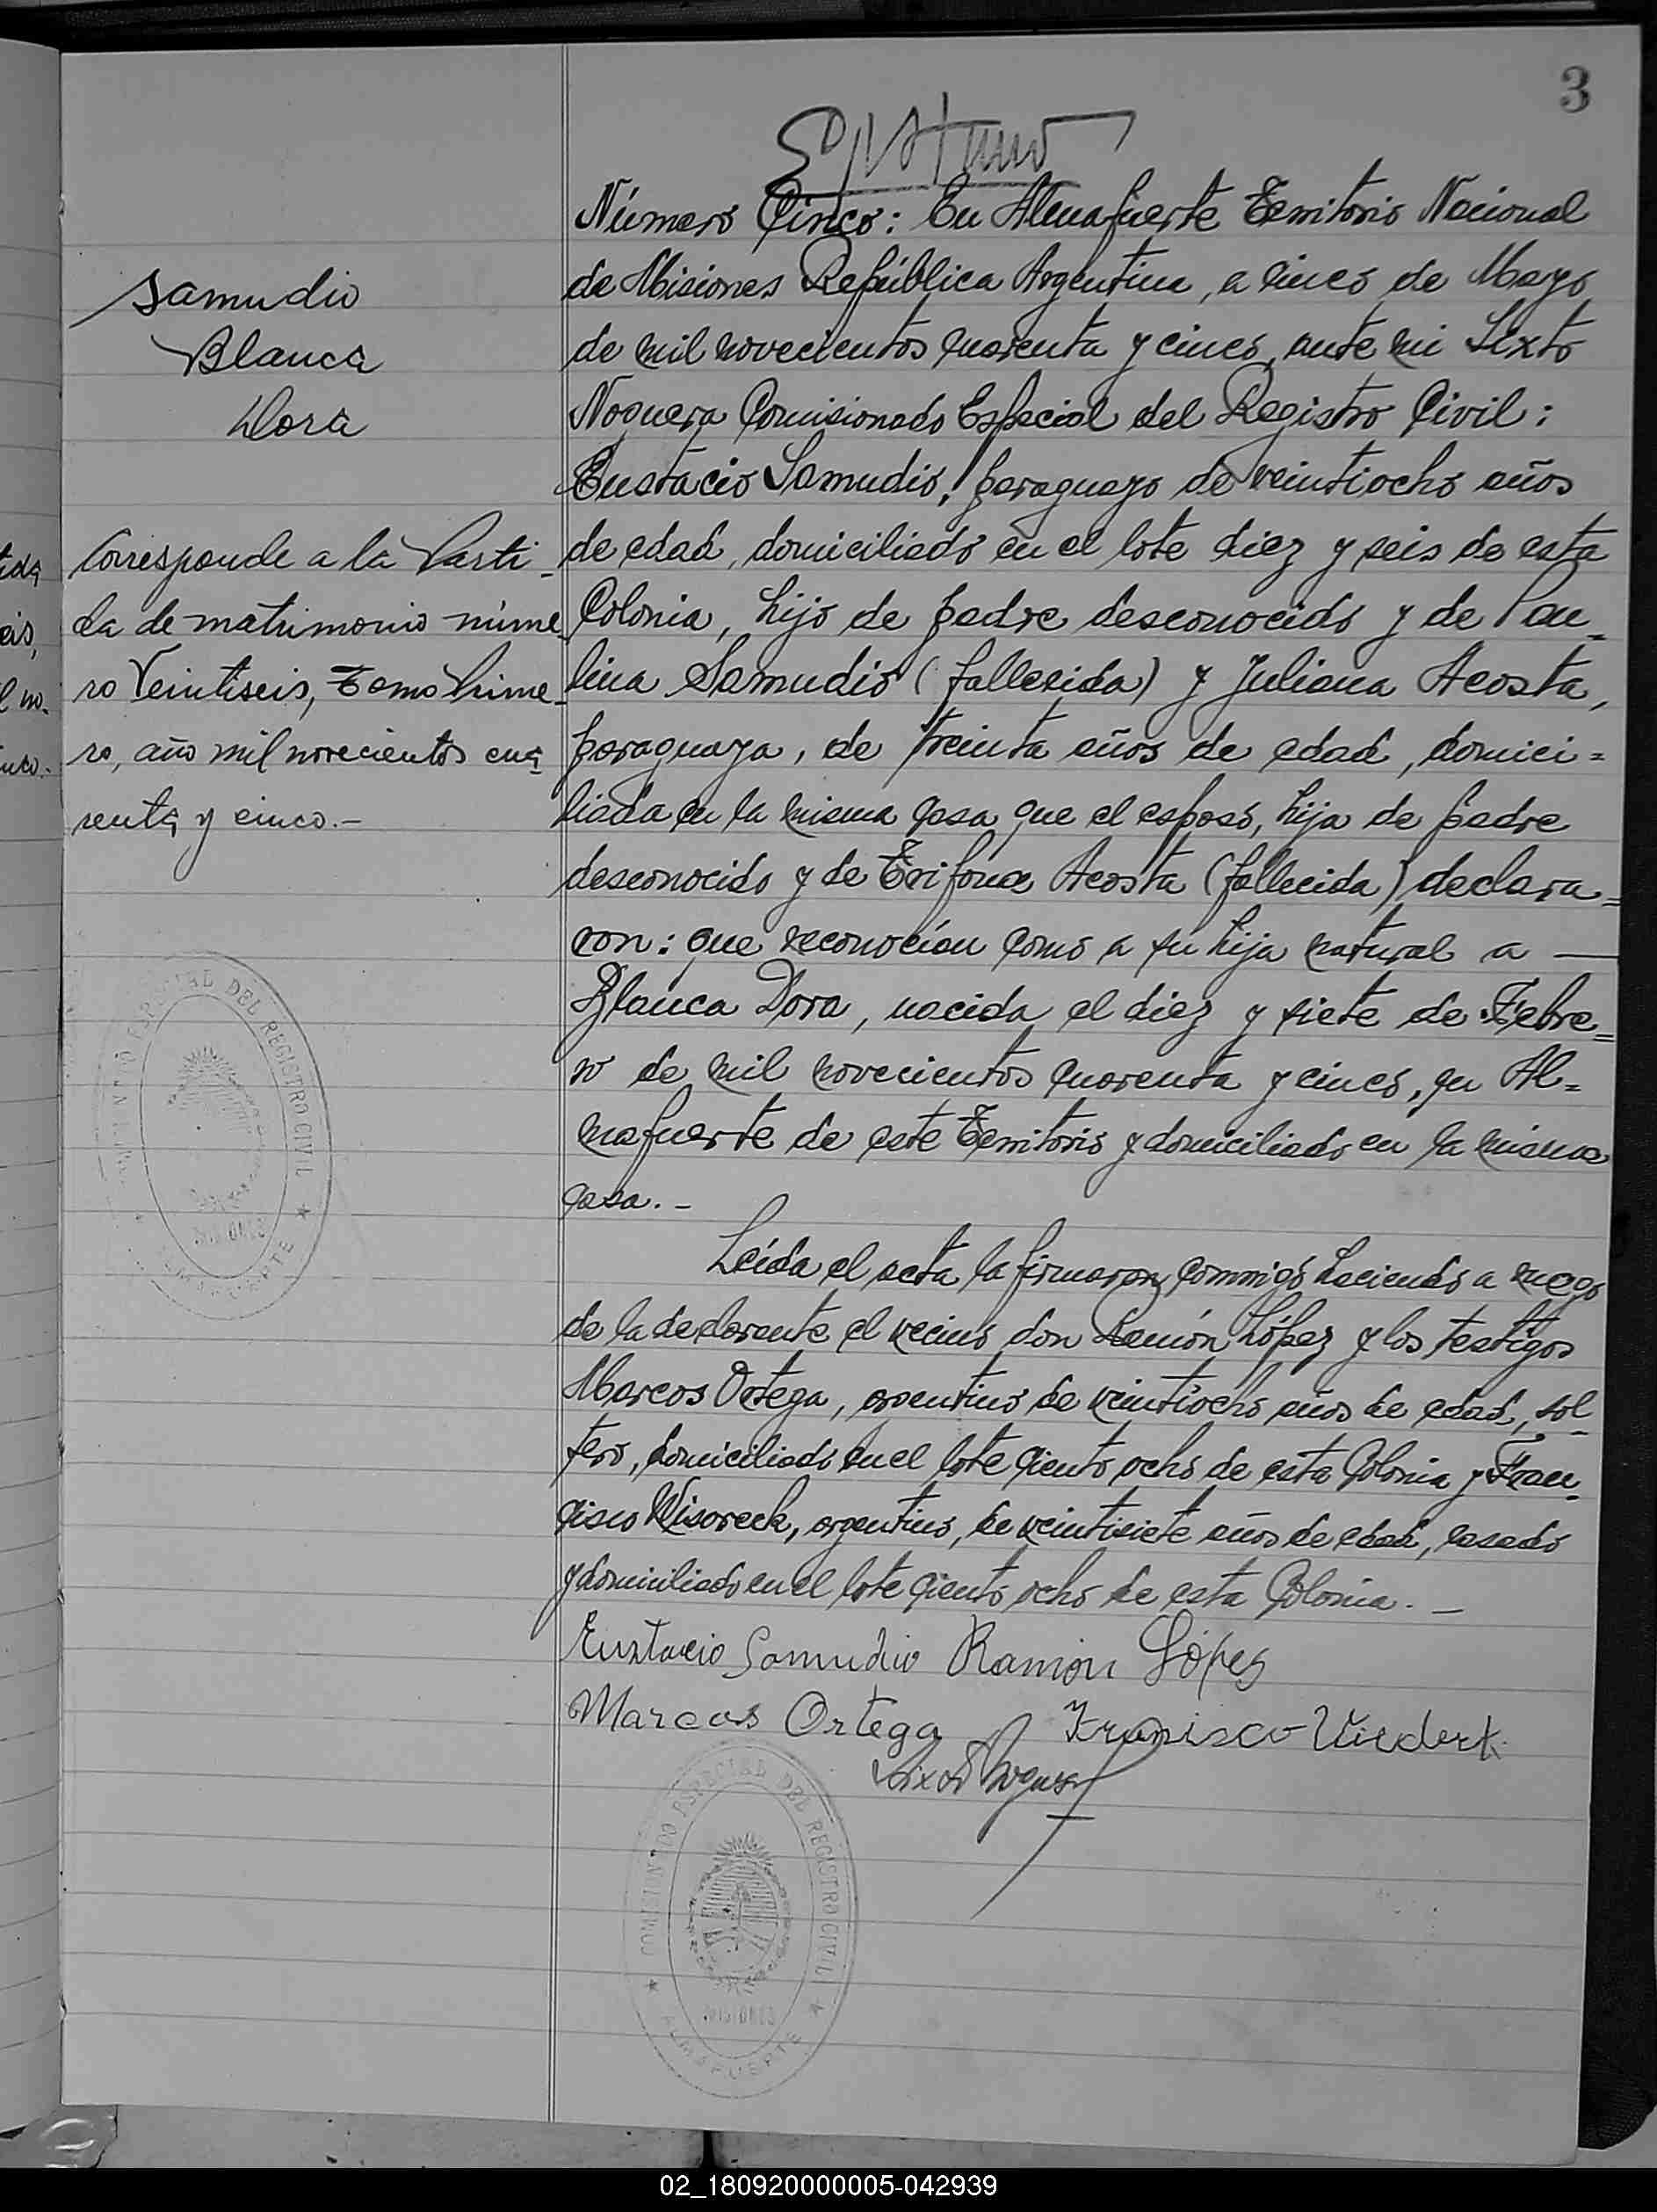 3
Samudio
Blanca
Dora
Corresponde a la Parti-
da de matrimonio núme-
ro Veintiseis, Tomo Prime-
ro, año mil novecientos cua-
renta y cinco.-
Número Cinco: En Almafuerte Territorio Nacional
de Misiones República Argentina, a cinco de Mayo
de mil novecientos cuarenta y cinco, ante mi Sixto
Noguera Comisionado Especial del Registro Civil:
Eustacio Samudio, paraguayo de veintiocho años
de edad, domiciliado en el lote diez y seis de esta
Colonia, hijo de padre desconocido y de Pau-
lina Samudio (fallecida) y Juliana Acosta,
paraguaya, de treinta años de edad, domici=
liada en la misma casa que el esposo, hija de padre
desconocido y de Trifona Acosta (fallecida) declara=
ron: que reconocían como a su hija natural a —
Blanca Dora, nacida el diez y siete de Febre=
ro de mil novecientos cuarenta y cinco, en Al=
mafuerte de este Territorio y domiciliado en la misma
casa.-
Leída el acta la firmaron conmigo haciendo a ruego
de la declarante el vecino don Ramón López y los testigos
Marcos Ortega, argentino de veintiocho años de edad, sol-
tero, domiciliado en el lote ciento ocho de esta Colonia y Fran-
cisco, argentino, de veintisiete años de edad, casado
y domiciliado en el lote ciento ocho de esta Colonia.-
Eustacio Samudio Ramón López
Marcos Ortega Francisco
Sixto Noguera
COMISIONADO ESPECIAL DEL REGISTRO CIVIL
MISIONES
ALMAFUERTE
COMISIONADO ESPECIAL DEL REGISTRO CIVIL
MISIONES
ALMAFUERTE
02_180920000005-042939